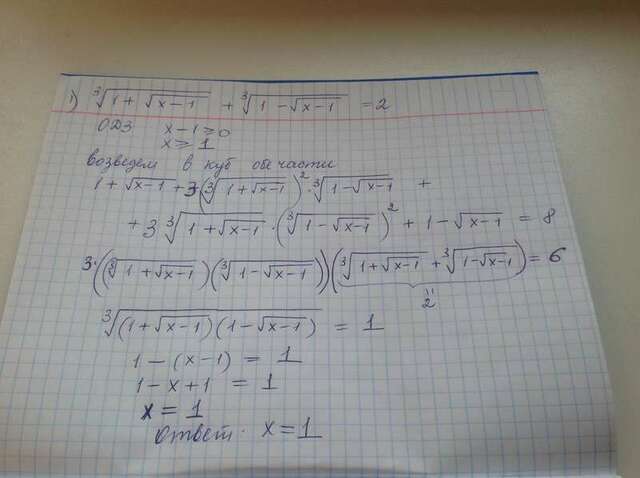 1) ∛(1 + √(x-1)) + ∛(1 - √(x-1)) = 2
ОДЗ x-1 ≥ 0
x ≥ 1
возведем в куб обе части
1 + √(x-1) + 3(∛(1+√(x-1)))² · ∛(1-√(x-1)) +
+ 3 ∛(1+√(x-1)) · (∛(1-√(x-1)))² + 1 - √(x-1) = 8
3·((∛(1+√(x-1)))(∛(1-√(x-1))))(∛(1+√(x-1)) + ∛(1-√(x-1))) = 6
2
∛((1+√(x-1))(1-√(x-1))) = 1
1 - (x-1) = 1
1 - x + 1 = 1
x = 1
Ответ. x = 1